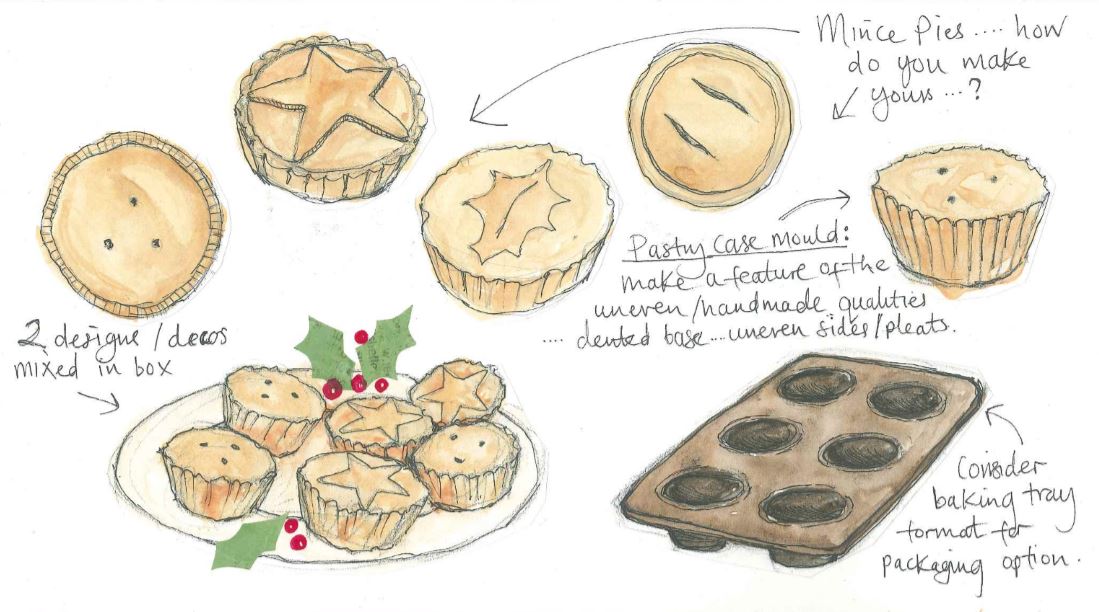 Mince Pies .... how
do you make
yours ...?
Pastry case mould:
make a feature of the
uneven/handmade qualities
.... dented base .... uneven sides/pleats.
2 designs/decos
mixed in box
Consider
baking tray
format for
packaging option.